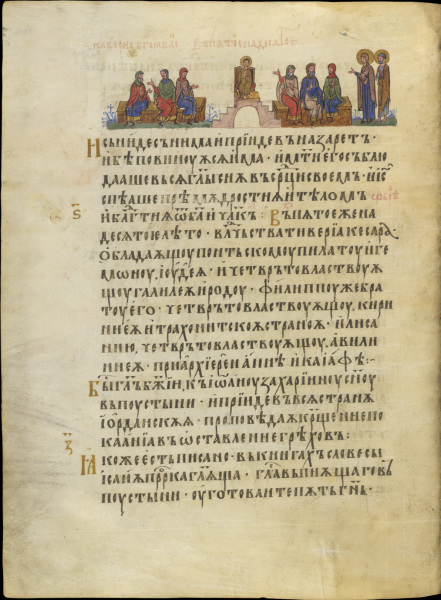 И сьниде съ нима и прїиде въ назаретъ·
и бѣ повиноуѫсѧ има· и мт҃и его съблю
даашевьсѧ гл҃ы сиѫ въ ср҃ци своемь· и іс҃
спѣаше прѣмѫдростиѫ и тѣломъ
и блг҃тиѫ ѿ ба҃ и чл҃къ: Въ пѧтоеже на
десѧтое лѣто· влⷣчьства тиверїа кесарѣ·
ѡбладаѫщоу поньтьскомоу пилатоу иге
мѡноу, іоудеѫ· и четврътовластвоуѫ
щоу галилеѫ иродоу· филиппоу же бра
тоу его· четврътовластвоуѫщоу,
нїеѫ и трахонитскоѫ страноѫ· и лиса
нїю, четврътовластвоуѫщоу, авили
нїеѫ· при архїереи аннѣ и каїафѣ:–
Бы гл҃ъ бж҃їи, къ іѡаноу захарїиноу сн҃оу
въ поустыни· и прїиде въ всѧ странѫ
їѡрданскѫѫ· проповѣдаѫ кр҃щенїе по
каанїа въ ѡставленїе грѣховъ:
Ꙗкоже есть писано· въ книгахъ словесы
ісаиѫ прⷪ҇рка гл҃ѫща· гла҃ въпиѫщаго въ
поустыни· оуготоваите пѫть гн҃ь·